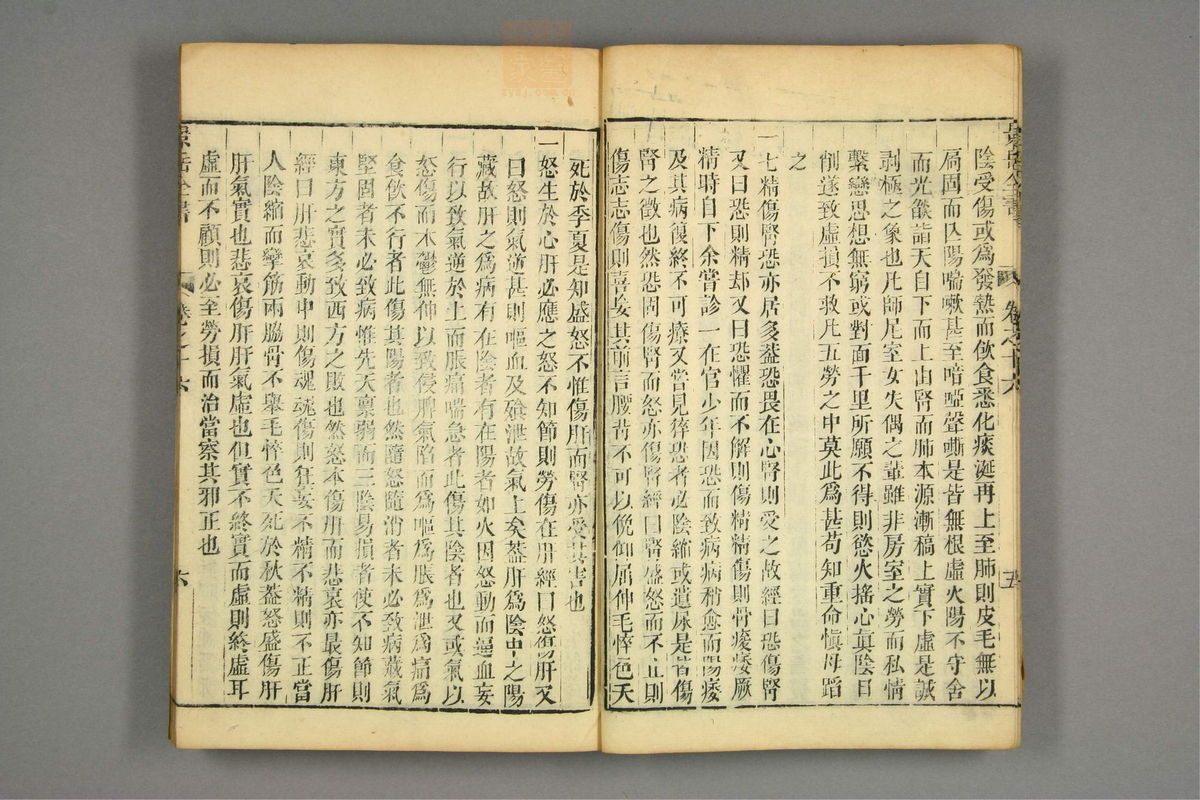 景岳全書
卷之十六
五
陰受傷或為發熱而飲食悉化痰涎再上至肺則皮毛無以
扃固而亾陽喘嗽甚至喑啞聲嘶是皆無根虛火陽不守舍
而光燄詣天自下而上由腎而肺本源漸槁上實下虛是誠
剥極之象也凡師尼室女失偶之輩雖非房室之勞而私情
繫戀思想無窮或對面千里所願不得則慾火搖心真陰日
削遂致虛損不救凡五勞之中莫此為甚苟知重命慎毋蹈
之
一七情傷腎恐亦居多葢恐畏在心腎則受之故經曰恐傷腎
又曰恐則精却又曰恐懼而不解則傷精精傷則骨痠痿厥
精時自下余嘗診一在官少年因恐而致病病稍愈而陽痿
及其病復終不可療又嘗見猝恐者必陰縮或遺尿是皆傷
腎之徵也然恐固傷腎而怒亦傷腎經曰腎盛怒而不止則
傷志志傷則喜妄其前言腰背不可以俛仰屈伸毛悴色夭
死於季夏是知盛怒不惟傷肝而腎亦受其害也
一怒生於心肝必應之怒不知節則勞傷在肝經曰怒傷肝又
曰怒則氣逆甚則嘔血及飱泄故氣上矣葢肝為陰中之陽
藏故肝之為病有在陰者有在陽者如火因怒動而逼血妄
行以致氣逆於上而脹痛喘急者此傷其陰者也又或氣以
怒傷而木鬱無伸以致侵脾氣陷而為嘔為脹為泄為痛為
食飲不行者此傷其陽者也然隨怒隨消者未必致病藏氣
堅固者未必致病惟先天禀弱而三陰易損者使不知節則
東方之實多致西方之敗也然怒本傷肝而悲哀亦最傷肝
經曰肝悲哀動中則傷魂魂傷則狂妄不精不精則不正當
人陰縮而攣筋兩脇骨不舉毛悴色夭死於秋葢怒盛傷肝
肝氣實也悲哀傷肝肝氣虛也但實不終實而虛則終虛耳
虛而不顧則必至勞損而治當察其邪正也
景岳全書
卷之十六
六